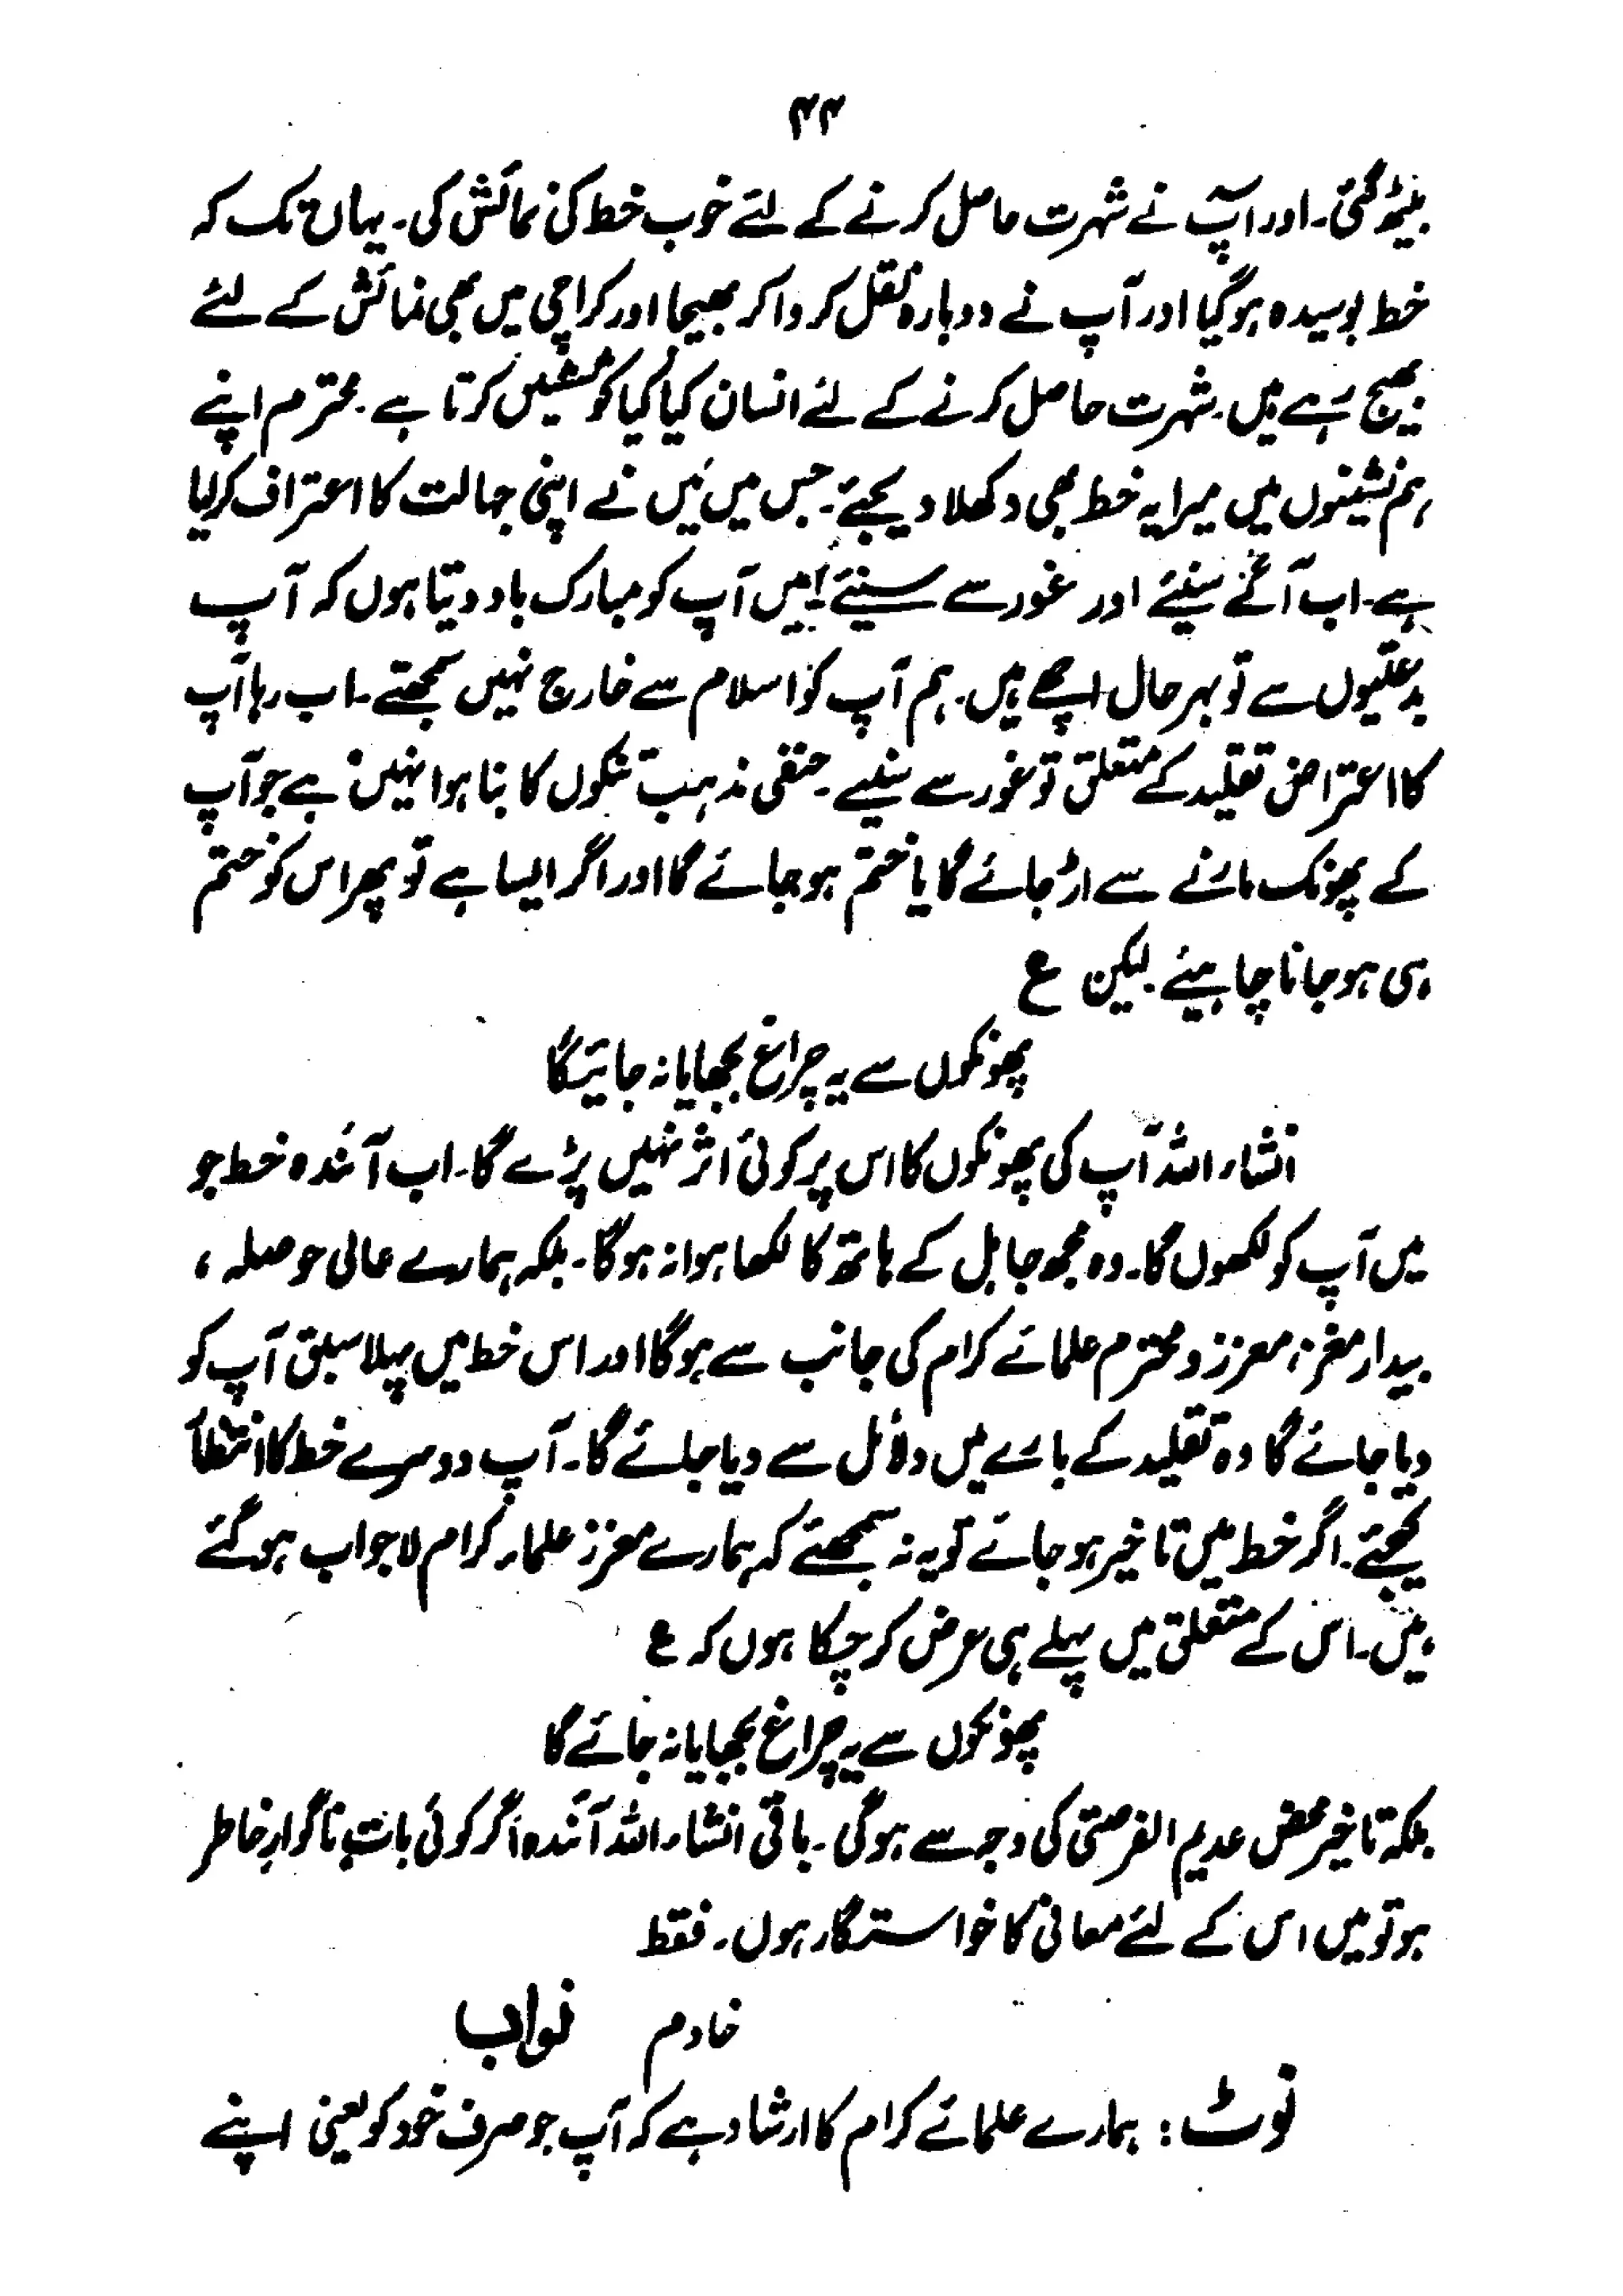 ۴۴
بیٹھ گئی۔ اور آپ نے شہرت حاصل کرنے کے لئے خوب خط کی نمائش کی۔ یہاں تک کہ
خط بوسیدہ ہو گیا اور آپ نے دوبارہ نقل کروا کر بھیجا اور کراچی میں بھی نمائش کے لئے
بھیج رہے ہیں۔ شہرت حاصل کرنے کے لئے انسان کیا کیا کوششیں کرتا ہے۔ محترم اپنے
ہم نشینوں میں میرا یہ خط بھی دکھلا دیجئے۔ جس میں میں نے اپنی جہالت کا اعتراف کر لیا
ہے۔ اب آگے سنیئے اور غور سے سنیئے! میں آپ کو مبارک باد دیتا ہوں کہ آپ
بدعتیوں سے تو بہر حال اچھے ہیں۔ ہم آپ کو اسلام سے خارج نہیں سمجھتے۔ اب رہا آپ
کا اعتراض تقلید کے متعلق تو غور سے سنیے۔ حنفی مذہب تنکوں کا بنا ہوا نہیں ہے جو آپ
کے پھونک مارنے سے اڑ جائے گا یا ختم ہو جائے گا اور اگر ایسا ہے تو پھر اس کو ختم
ہی ہو جانا چاہیئے۔ لیکن ع
پھونکوں سے یہ چراغ بجھایا نہ جائیگا
انشاء اللہ آپ کی پھونکوں کا اس پر کوئی اثر نہیں پڑے گا۔ اب آئندہ خط جو
میں آپ کو لکھوں گا۔ وہ مجھ جاہل کے ہاتھ کا لکھا ہوا نہ ہوگا۔ بلکہ ہمارے عالی حوصلہ،
بیدار مغز، معزز و محترم علمائے کرام کی جانب سے ہوگا اور اس خط میں پہلا سبق آپ کو
دیا جائے گا وہ تقلید کے بارے میں دلائل سے دیا جائے گا۔ آپ دوسرے خط کا انتظار
کیجئے۔ اگر خط میں تاخیر ہو جائے تو یہ نہ سمجھئے کہ ہمارے معزز علماء کرام لاجواب ہو گئے
ہیں۔ اس کے متعلق میں پہلے ہی عرض کر چکا ہوں کہ ع
پھونکوں سے یہ چراغ بجھایا نہ جائے گا
بلکہ تاخیر محض عدیم الفرصتی کی وجہ سے ہوگی۔ باقی انشاء اللہ آئندہ اگر کوئی بات ناگوارِ خاطر
ہو تو میں اس کے لئے معافی کا خواستگار ہوں۔ فقط
خادم نواب
نوٹ: ہمارے علمائے کرام کا ارشاد ہے کہ آپ جو صرف خود کو یعنی اپنے